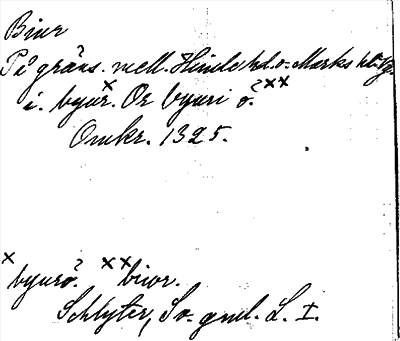 Biur
På gräns. mell. Kinds hd. o. Marks hd. Vg.
i. byurˣ. Or byuri ö.ˣˣ
Omkr. 1325.
ˣ byurö. ˣˣ biwr.
Schlyter, Sv. gml. L. I.